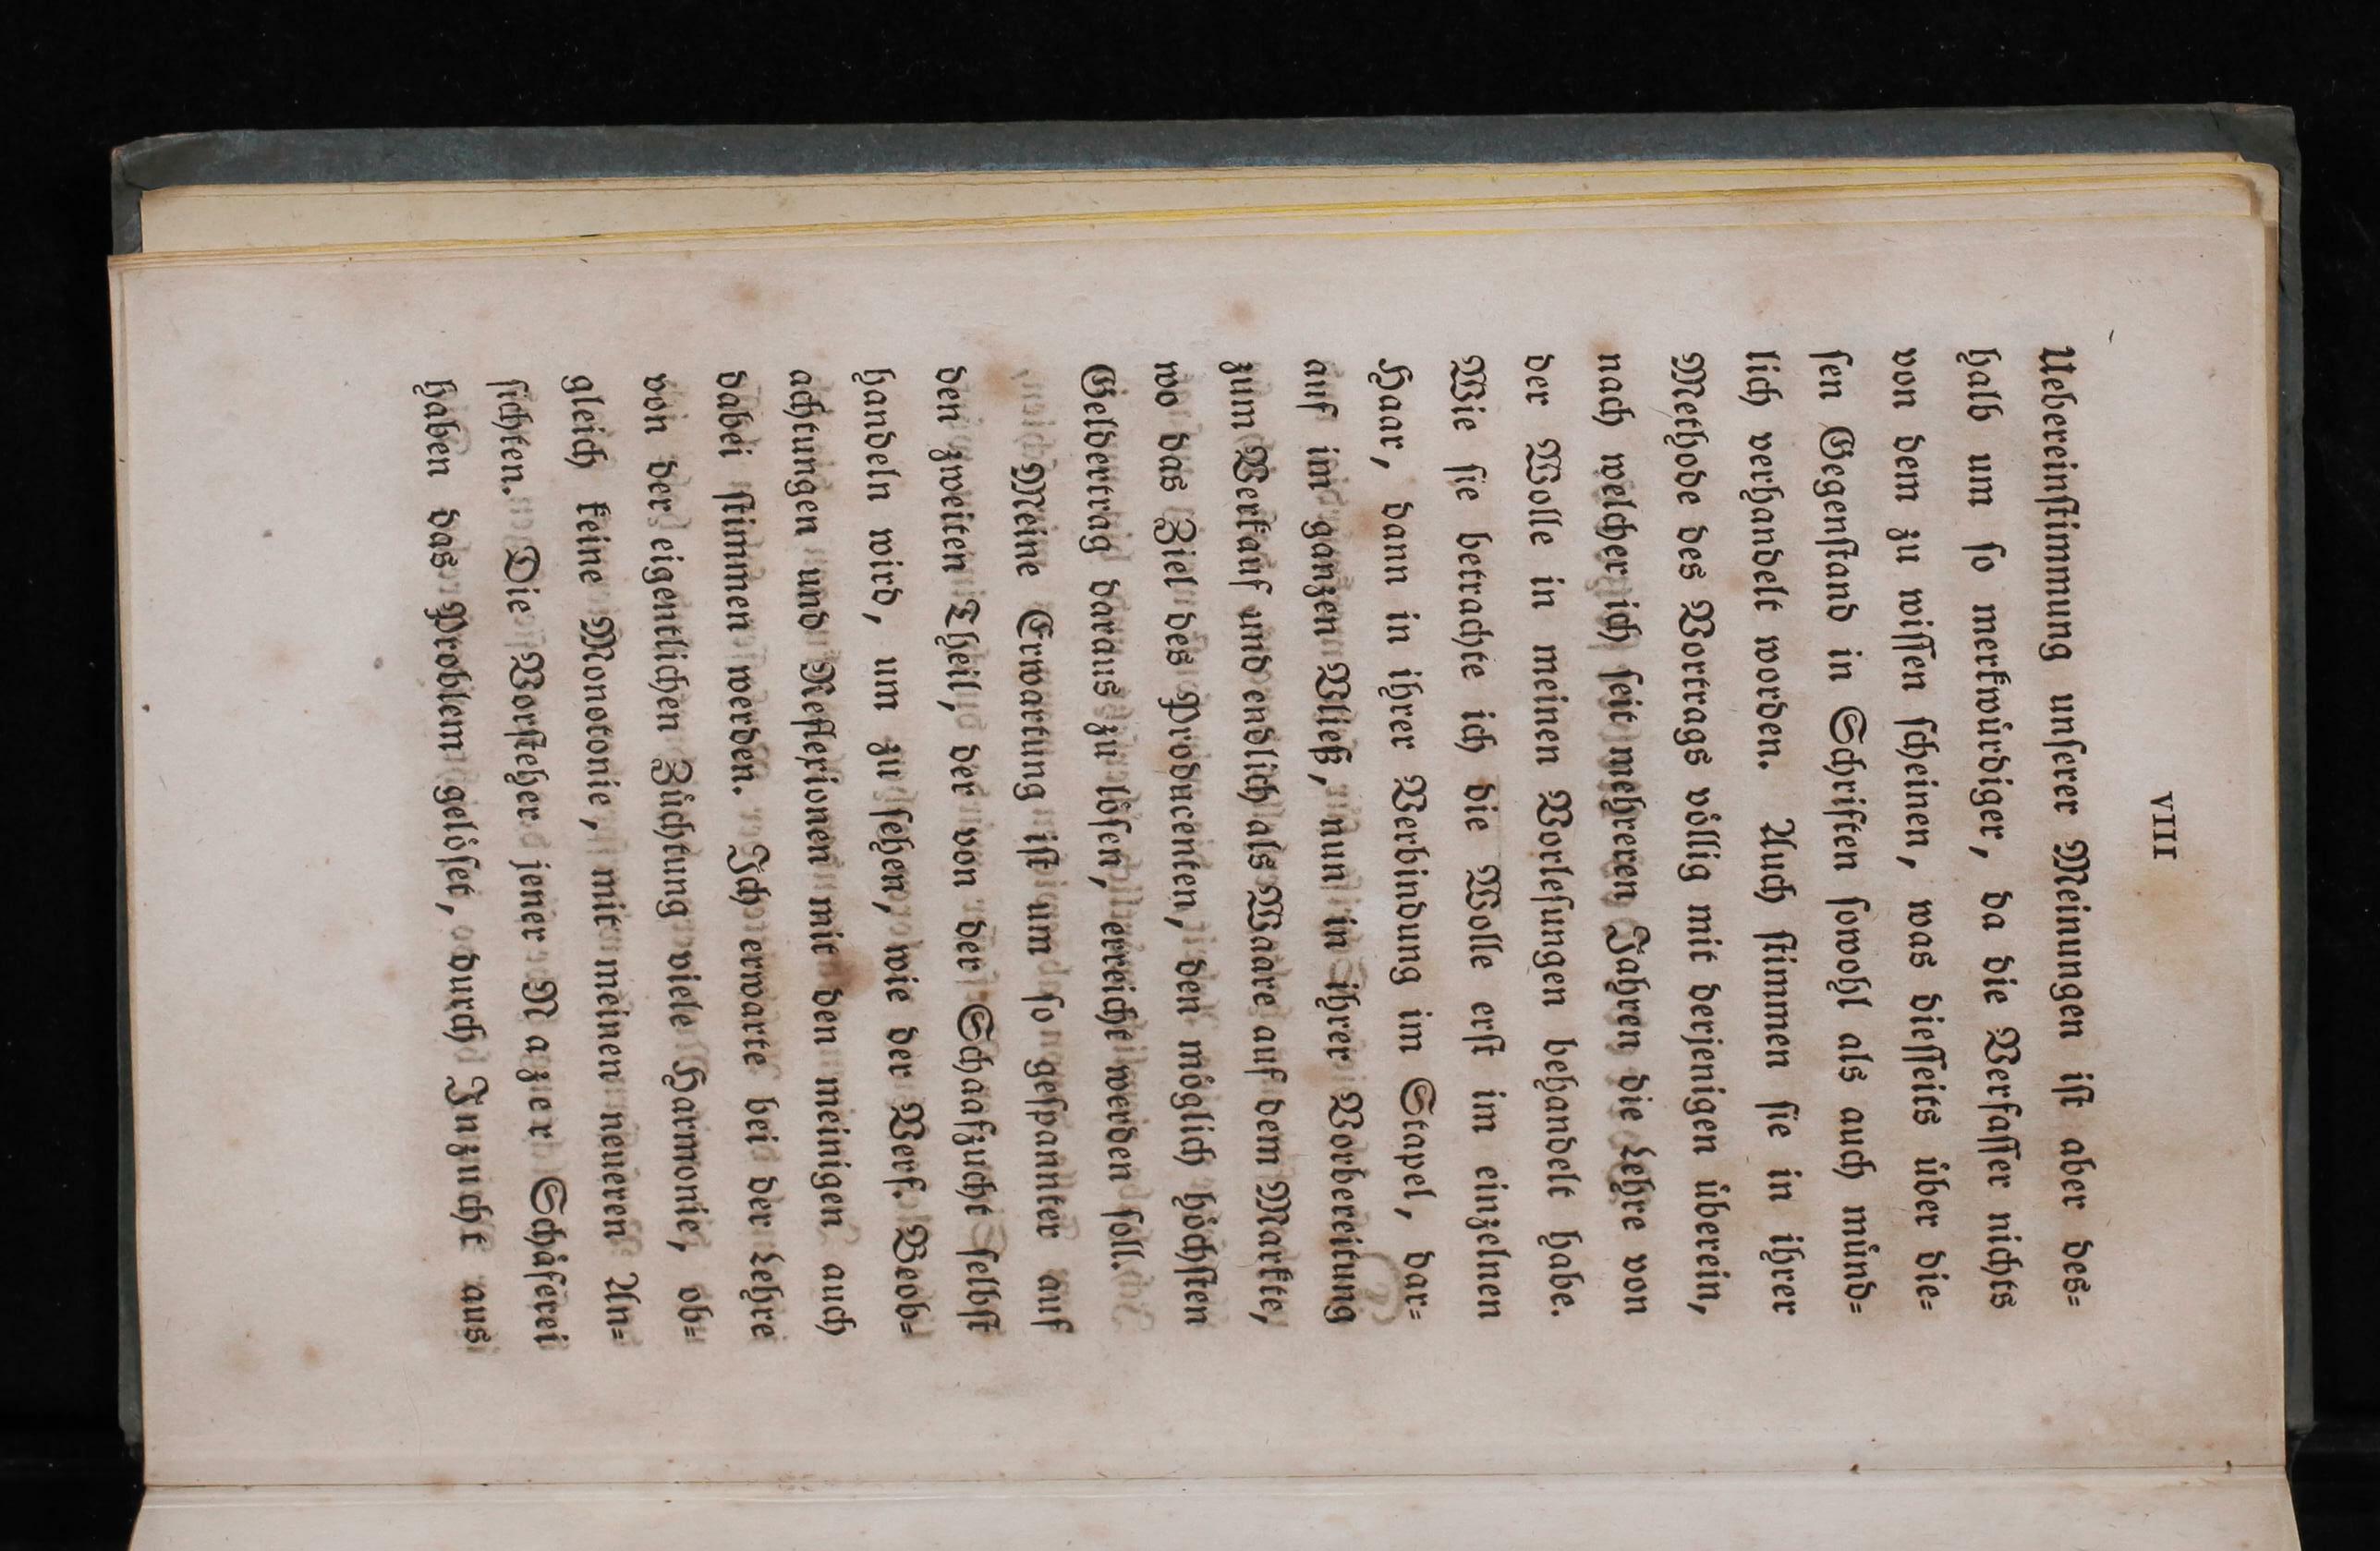 VIII
Uebereinſtimmung unſerer Meinungen iſt aber des=
halb um ſo merkwürdiger, da die Verfaſſer nichts
von dem zu wiſſen ſcheinen, was dieſſeits über die=
ſen Gegenſtand in Schriften ſowohl als auch münd=
lich verhandelt worden. Auch ſtimmen ſie in ihrer
Methode des Vortrags völlig mit derjenigen überein,
nach welcher ich ſeit mehreren Jahren die Lehre von
der Wolle in meinen Vorleſungen behandelt habe.
Wie ſie betrachte ich die Wolle erſt im einzelnen
Haar, dann in ihrer Verbindung im Stapel, dar=
auf im ganzen Vließ, nun in ihrer Vorbereitung
zum Verkauf und endlich als Waare auf dem Markte,
wo das Ziel des Producenten, den möglich höchſten
Geldertrag daraus zu löſen, erreicht werden ſoll.
Meine Erwartung iſt um ſo geſpannter auf
den zweiten Theil, der von der Schaafzucht ſelbſt
handeln wird, um zu ſehen, wie der Verf. Beob=
achtungen und Reflexionen mit den meinigen auch
dabei ſtimmen werden. Ich erwarte bei der Lehre
von der eigentlichen Züchtung viele Harmonie, ob=
gleich keine Monotonie, mit meinen neueren An=
ſichten. Die Vorſteher jener Nazer Schäferei
haben das Problem gelöſet, durch Inzucht aus